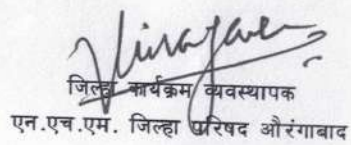 जिल्हा कार्यक्रम व्यवस्थापक
एन.एच.एम. जिल्हा परिषद औरंगाबाद